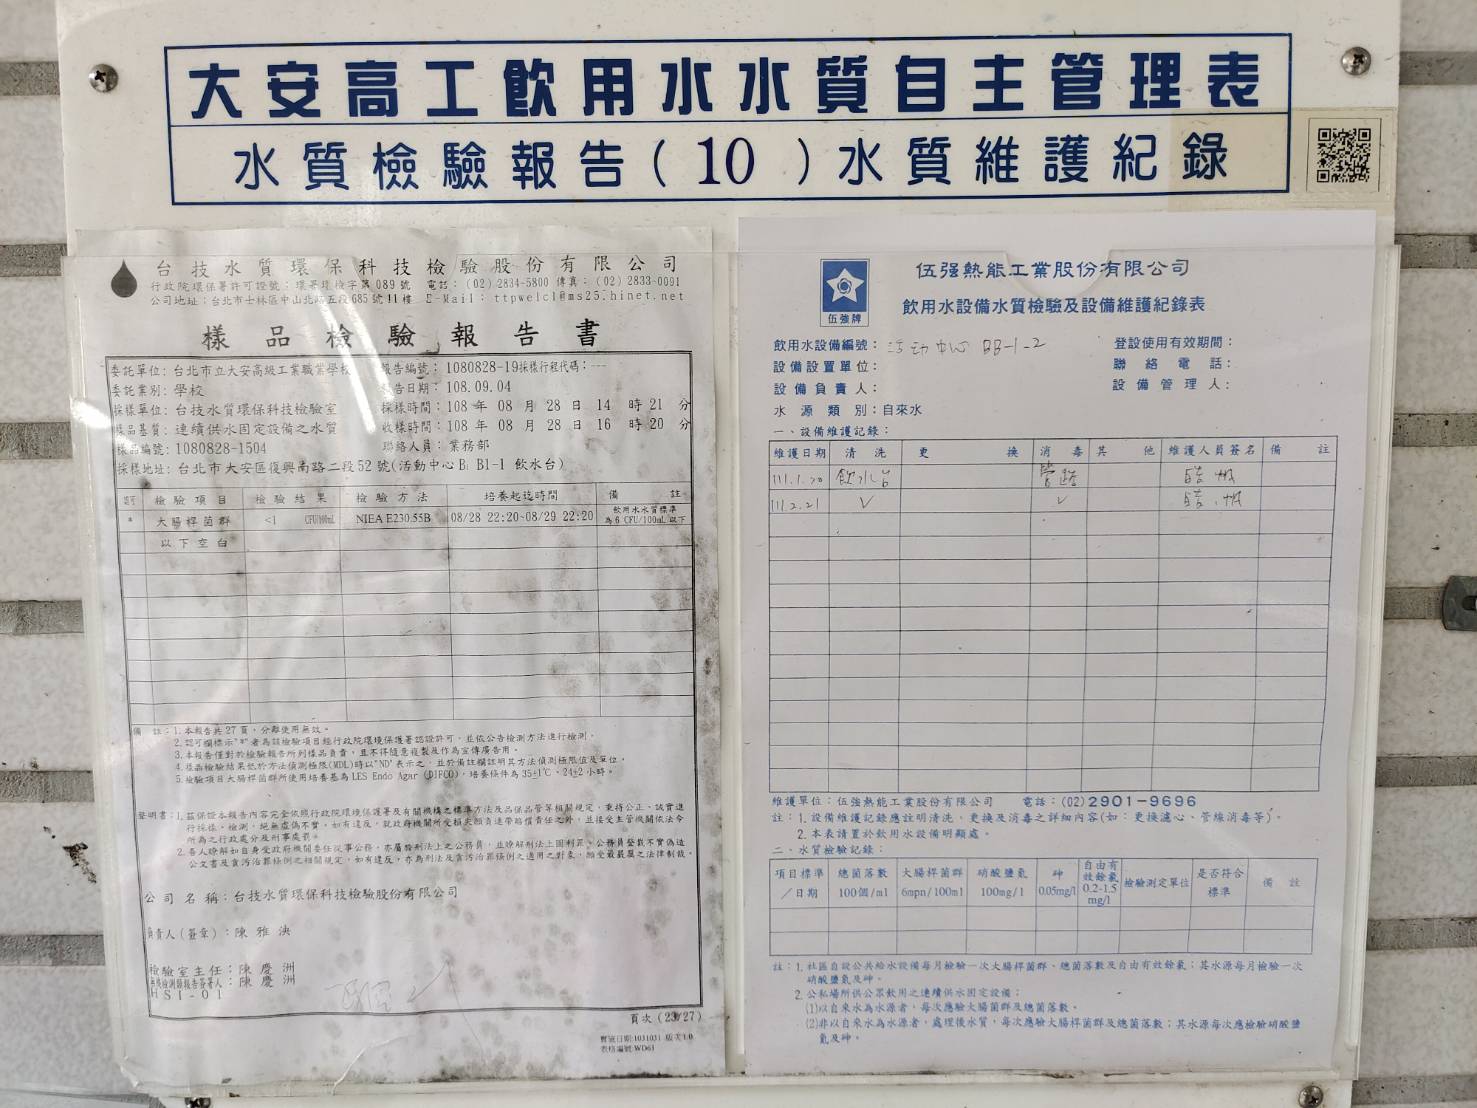 大安高工飲用水水質自主管理表
水質檢驗報告(10)水質維護紀錄
台技水質環保科技檢驗股份有限公司
行政院環保署許可證號：環署環檢字第089號 電話：(02) 2834-5800 傳真：(02) 2833-0091
公司地址：台北市士林區中山北路五段685號11樓 E-Mail：ttpwelcl@ms25.hinet.net
樣品檢驗報告書
委託單位：台北市立大安高級工業職業學校 報告編號：1080828-19採樣行程代碼：---
委託業別：學校 報告日期：108.09.04
採樣單位：台技水質環保科技檢驗室 採樣時間：108 年 08 月 28 日 14 時 21 分
樣品基質：連續供水固定設備之水質 收樣時間：108 年 08 月 28 日 16 時 20 分
樣品編號：1080828-1504 聯絡人員：業務部
採樣地址：台北市大安區復興南路二段52號(活動中心B; B1-1 飲水台)
認可 檢驗項目 檢驗結果 檢驗方法 培養起迄時間 備註
* 大腸桿菌群 <1 CFU/100mL NIEA E230.55B 08/28 22:20~08/29 22:20 飲用水水質標準為6 CFU/100mL以下
以下空白
備 註：1.本報告共27頁，分離使用無效。
2.認可欄標示"*"者為該檢驗項目經行政院環境保護署認證許可，並依公告檢測方法進行檢測。
3.本報告僅對於檢驗報告所列樣品負責，且不得隨意複製及作為宣傳廣告用。
4.樣品檢驗結果低於方法偵測極限(MDL)時以"ND"表示之，並於備註欄註明其方法偵測極限值及單位。
5.檢驗項目大腸桿菌群所使用培養基為LES Endo Agar (DIFCO)，培養條件為35±1℃、24±2小時。
聲明書：1.茲保證本報告內容完全依照行政院環境保護署及有關機構之標準方法及品保品管等相關規定，秉持公正、誠實進
行採樣、檢測，絕無虛偽不實，如有違反，就政府機關所受損失願負連帶賠償責任之外，並接受主管機關依法令
所為之行政處分及刑事處罰。
2.吾人瞭解如自身受政府機關委任從事公務，亦屬於刑法上之公務員，並瞭解刑法上圖利罪、公務員登載不實偽造
公文書及貪污治罪條例之相關規定，如有違反，亦為刑法及貪污治罪條例之適用之對象，願受最嚴厲之法律制裁。
公司名稱：台技水質環保科技檢驗股份有限公司
負責人(簽章)：陳雅泱
檢驗室主任：陳慶洲
檢測類報告簽署人：陳慶洲
HSI-01
頁次 (23/27)
實施日期:1031031 版次1.0
表格編號:WD61
伍強牌
伍强熱能工業股份有限公司
飲用水設備水質檢驗及設備維護紀錄表
飲用水設備編號：活动中心 BB-1-2 登設使用有效期間：
設備設置單位： 聯絡電話：
設備負責人： 設備管理人：
水源類別：自來水
一、設備維護記錄：
維護日期 清洗 更換 消毒 其他 維護人員簽名 備註
111.1.20 飲水台 管路
111.2.21 ✓ ✓
維護單位：伍強熱能工業股份有限公司 電話：(02)2901-9696
註：1.設備維護記錄應註明清洗、更換及消毒之詳細內容(如：更換濾心、管線消毒等)。
2.本表請置於飲用水設備明顯處。
二、水質檢驗記錄：
項目標準／日期 總菌落數100個/ml 大腸桿菌群6mpn/100ml 硝酸鹽氮100mg/l 砷0.05mg/l 自由有效餘氯0.2-1.5mg/l 檢驗測定單位 是否符合標準 備註
註：1.社區自設公共給水設備每月檢驗一次大腸桿菌群、總菌落數及自由有效餘氯；其水源每月檢驗一次
硝酸鹽氮及砷。
2.公私場所供公眾飲用之連續供水固定設備：
(1)以自來水為水源者，每次應驗大腸菌群及總菌落數。
(2)非以自來水為水源者，處理後水質，每次應驗大腸桿菌群及總菌落數；其水源每次應檢驗硝酸鹽
氮及砷。